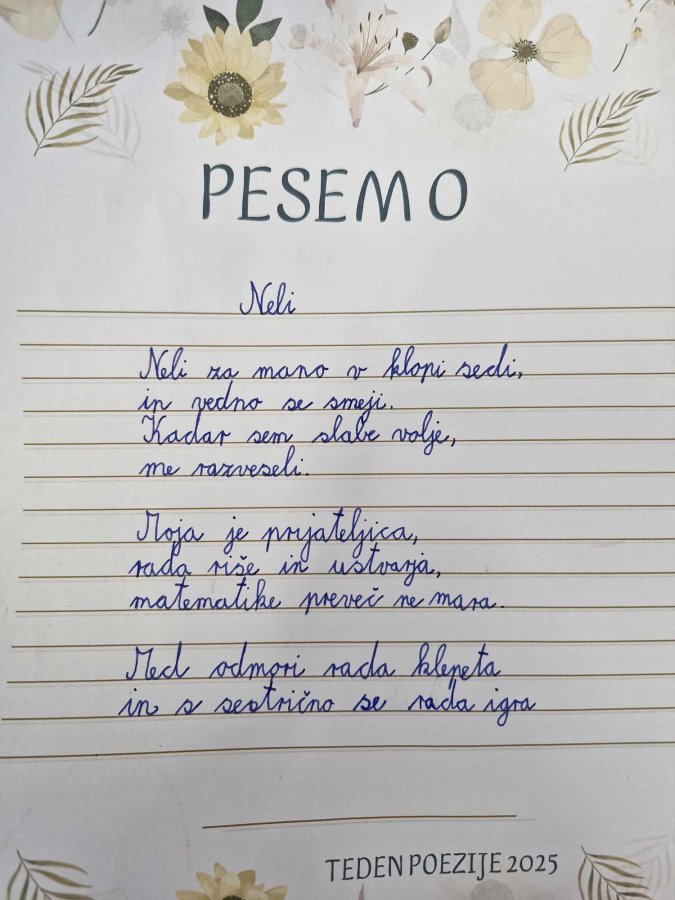 PESEMO
Neli
Neli za mano v klopi sedi,
in vedno se smeji.
Kadar sem slabe volje,
me razveseli.
Moja je prijateljica,
rada riše in ustvarja,
matematike preveč ne mara.
Med odmori rada klepeta
in s sestrično se rada igra
TEDEN POEZIJE 2025